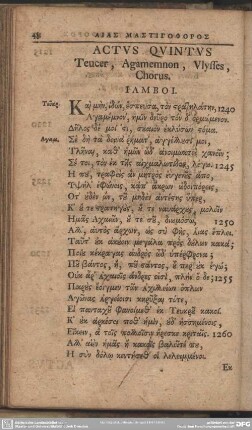 48 ΑΙΑΣ ΜΑΣΤΙΓΟΦΟΡΟΣ
ACTVS QVINTVS
Teucer, Agamemnon, Vlysses,
Chorus.
IAMBOI.
Τεῦκ. Καὶ μὴν ἰδὼν ἔσπευσα, τὸν στρατηλάτην, 1240
Ἀγαμέμνον', ἡμῖν δεῦρο τόνδ' ὁρμώμενον.
Δῆλος δέ μοί 'στι, σκαιὸν ἐκλύσων στόμα.
Ἀγαμ. Σὲ δὴ τὰ δεινὰ ῥήματ', ἀγγέλλουσί μοι,
Τλῆναι, καθ' ἡμῶν ὧδ' ἀνοιμωκτεὶ χανεῖν;
Σέ τοι, τὸν ἐκ τῆς αἰχμαλωτίδος, λέγω. 1245
Ἦ που, τραφεὶς ἂν μητρὸς εὐγενοῦς ἄπο,
Ὑψήλ' ἐφώνεις, κἀπ' ἄκρων ὡδοιπόρεις,
Ὅτ' οὐδὲν ὢν, τοῦ μηδὲν ἀντέστης ὕπερ,
Κ' οὔτε στρατηγοὺς, οὔτε ναυάρχους, μολεῖν
Ἡμᾶς Ἀχαιῶν, οὔτε σοῦ, διωμόσω, 1250
Ἀλλ', αὐτὸς ἄρχων, ὡς σὺ φῂς, Αἴας ἔπλει.
Ταῦτ' οὐκ ἀκούειν μεγάλα πρὸς δούλων κακά;
Ποίας κέκραγας ἀνδρὸς ὧδ' ὑπέρφρονα;
Ποῦ βάντος, ἢ ποῦ στάντος, οὗπερ οὐκ ἐγώ;
Οὐκ ἆρ' Ἀχαιοῖς ἄνδρες εἰσὶ, πλὴν ὅδε; 1255
Πικροὺς ἔοιγμεν τῶν Ἀχιλλείων ὅπλων
Ἀγῶνας Ἀργείοισι κηρῦξαι τότε,
Εἰ πανταχῆ φανούμεθ' ἐκ Τεύκρου κακοί.
Κ' οὐκ ἀρκέσει ποθ' ὑμῖν, οὐδ' ἡσσημένοις,
Εἴκειν, ἃ τοῖς πολλοῖσιν ἤρεσκε κριταῖς. 1260
Ἀλλ' αἰὲν ἡμᾶς ἢ κακοῖς βαλεῖτέ που,
Ἢ σὺν δόλῳ κεντήσεθ' οἱ λελειμμένοι.
Ἐκ